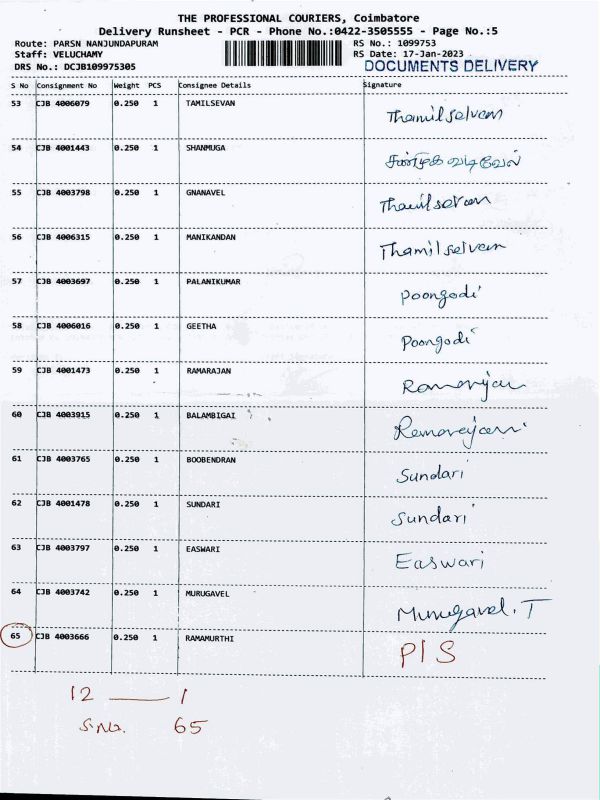 THE PROFESSIONAL COURIERS, Coimbatore
Delivery Runsheet - PCR - Phone No.:0422-3505555 - Page No.:5
Route: PARSN NANJUNDAPURAM RS No.: 1099753
Staff: VELUCHAMY RS Date: 17-Jan-2023
DRS No.: DCJB109975305 DOCUMENTS DELIVERY
S No Consignment No Weight PCS Consignee Details Signature
53 CJB 4006079 0.250 1 TAMILSEVAN Thamilselvam
54 CJB 4001443 0.250 1 SHANMUGA
55 CJB 4003798 0.250 1 GNANAVEL Thamilselvan
56 CJB 4006315 0.250 1 MANIKANDAN Thamilselvan
57 CJB 4003697 0.250 1 PALANIKUMAR Poongodi
58 CJB 4006016 0.250 1 GEETHA Poongodi
59 CJB 4001473 0.250 1 RAMARAJAN
60 CJB 4003915 0.250 1 BALAMBIGAI
61 CJB 4003765 0.250 1 BOOBENDRAN Sundari
62 CJB 4001478 0.250 1 SUNDARI Sundari
63 CJB 4003797 0.250 1 EASWARI Easwari
64 CJB 4003742 0.250 1 MURUGAVEL Murugavel. T
65 CJB 4003666 0.250 1 RAMAMURTHI P/S
12 — 1
S.No. 65